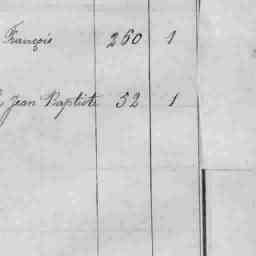 François 260 1
Jean Baptiste 52 1